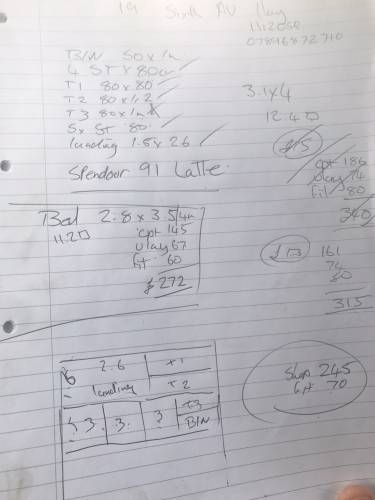 19 Sixth AV Hay
11120SE
07896872710
B/N 50 x 1m
4 ST x 80cm
T1 80 x 80
T2 80 x 1.2
T3 80 x 1m
5x ST 80.
landing 1.5 x 26
Splendoor 91 Latte.
3.1 x 4
12.4□
£15
cpt 186
ulay 74
fit 80
340
Bed 2.8 x 3.5/4m
11.2□
cpt 145
ulay 67
fit 60
£272
£13
161
74
80
315
2.6 T1
landing T2
3. 3. 3 T3
B/N
Shop 245
fit 70